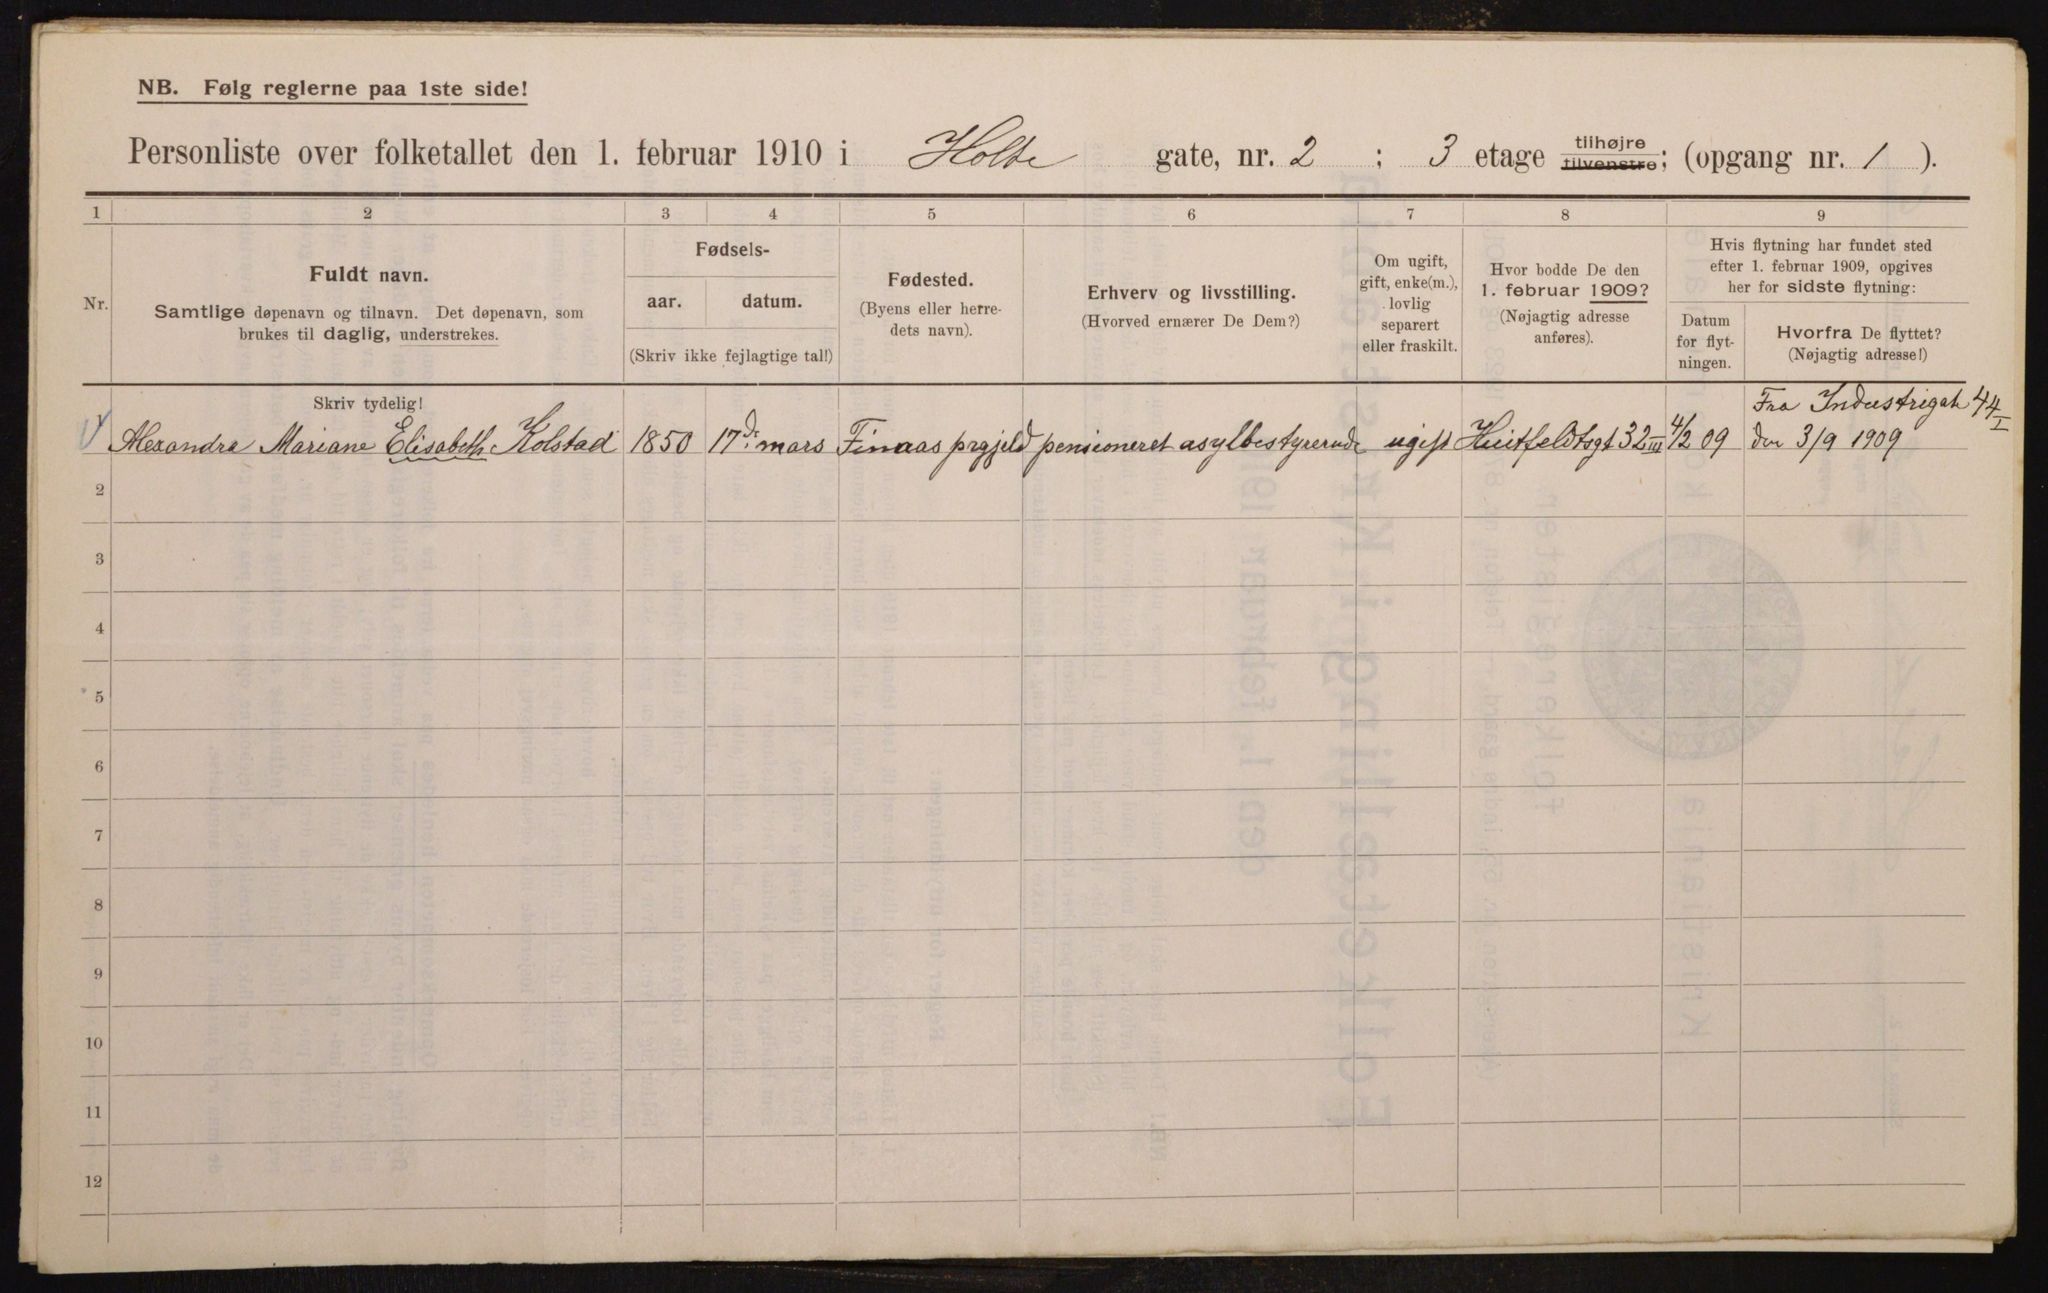 NB. Følg reglerne paa 1ste side!
Personliste over folketallet den 1. februar 1910 i Holte gate, nr. 2 ; 3 etage tilhøjre tilvenstre; (opgang nr. 1 ).
1 2 3 4 5 6 7 8 9
Nr.
Fuldt navn.
Samtlige døpenavn og tilnavn. Det døpenavn, som
brukes til daglig, understrekes.
Skriv tydelig!
Fødsels-
aar. datum.
(Skriv ikke fejlagtige tal!)
Fødested.
(Byens eller herre-
dets navn).
Erhverv og livsstilling.
(Hvorved ernærer De Dem?)
Om ugift,
gift, enke(m.),
lovlig
separert
eller fraskilt.
Hvor bodde De den
1. februar 1909?
(Nøjagtig adresse
anføres).
Hvis flytning har fundet sted
efter 1. februar 1909, opgives
her for sidste flytning:
Datum
for flyt-
ningen.
Hvorfra De flyttet?
(Nøjagtig adresse!)
Fra Industrigate 44 I
1 Alexandra Mariane Elisabeth Kolstad 1850 17de mars Finaas prgjeld pensioneret asylbestyrerinde ugift Huitfeldtsgt 32 III 4/2 09 den 3/9 1909
2
3
4
5
6
7
8
9
10
11
12